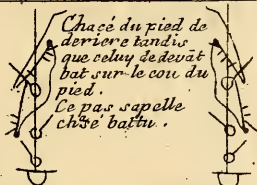 Chacé du pied de
deriere tandis
que celuy de devāt
bat sur le cou du
pied.
Ce pas sapelle
chasé battu.